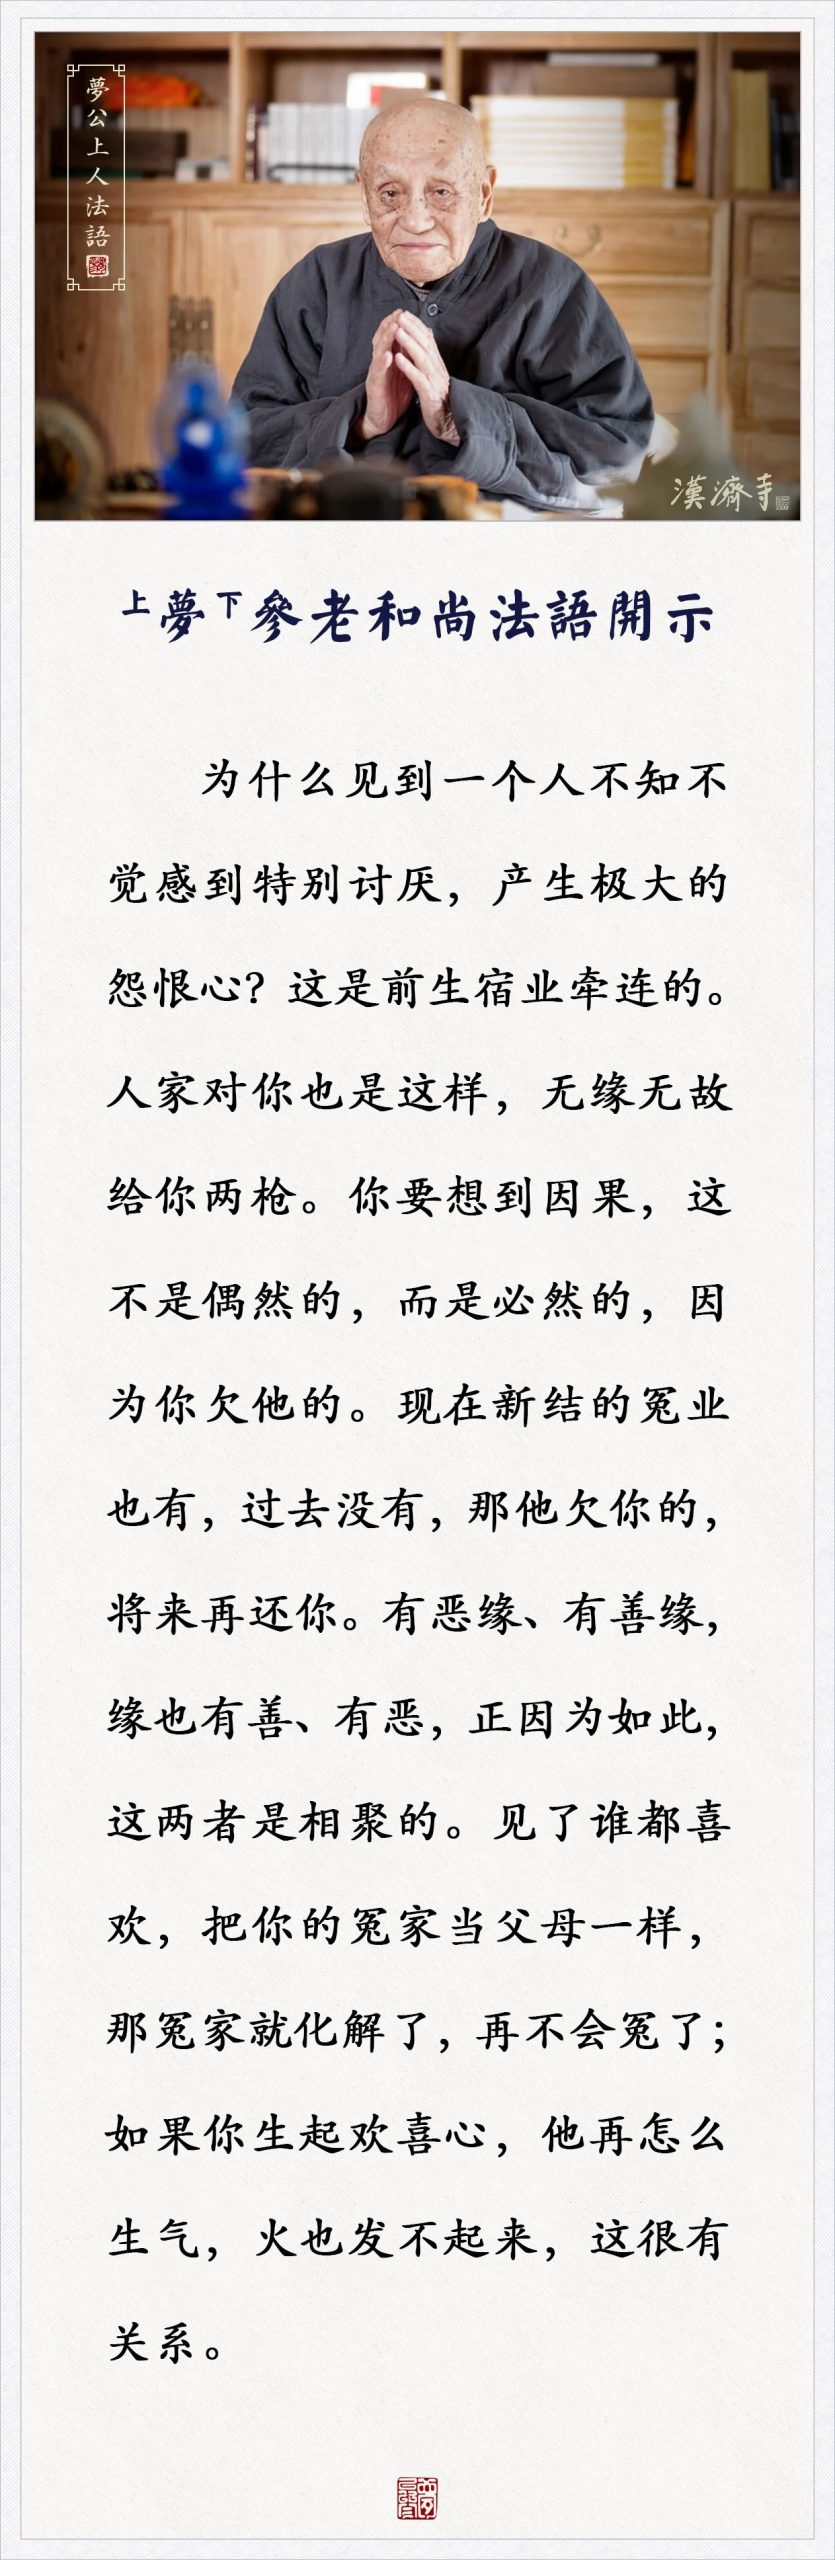 夢公上人法語
漢濟寺
上夢下參老和尚法語開示
为什么见到一个人不知不
觉感到特别讨厌，产生极大的
怨恨心？这是前生宿业牵连的。
人家对你也是这样，无缘无故
给你两枪。你要想到因果，这
不是偶然的，而是必然的，因
为你欠他的。现在新结的冤业
也有，过去没有，那他欠你的，
将来再还你。有恶缘、有善缘，
缘也有善、有恶，正因为如此，
这两者是相聚的。见了谁都喜
欢，把你的冤家当父母一样，
那冤家就化解了，再不会冤了；
如果你生起欢喜心，他再怎么
生气，火也发不起来，这很有
关系。